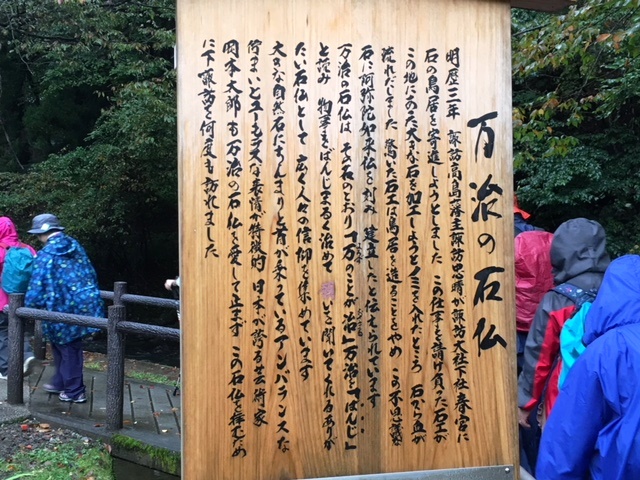 万治の石仏
明暦三年 諏訪高島藩主諏訪忠晴が諏訪大社下社春宮に
石の鳥居を寄進しようとしました この仕事を請け負った石工が
この地にあった大きな石を加工しようとノミを入れたところ 石から血が
流れだしました 驚いた石工は鳥居を造ることをやめ この不思議な
石に阿弥陀如来仏を刻み 建立したと伝えられています
万治の石仏は その名のとおり「万のことが治」万治を「ばんじ」
と読み 物事をばんじまるく治めて 願いを聞いてくれるありが
たい石仏として 広く人々の信仰を集めています
大きな自然石にちんまりと首が乗っているアンバランスな
佇まいとユーモラスな表情が特徴的 日本が誇る芸術家
岡本太郎も万治の石仏を愛して止まず この石仏を拝むため
に下諏訪を何度も訪れました